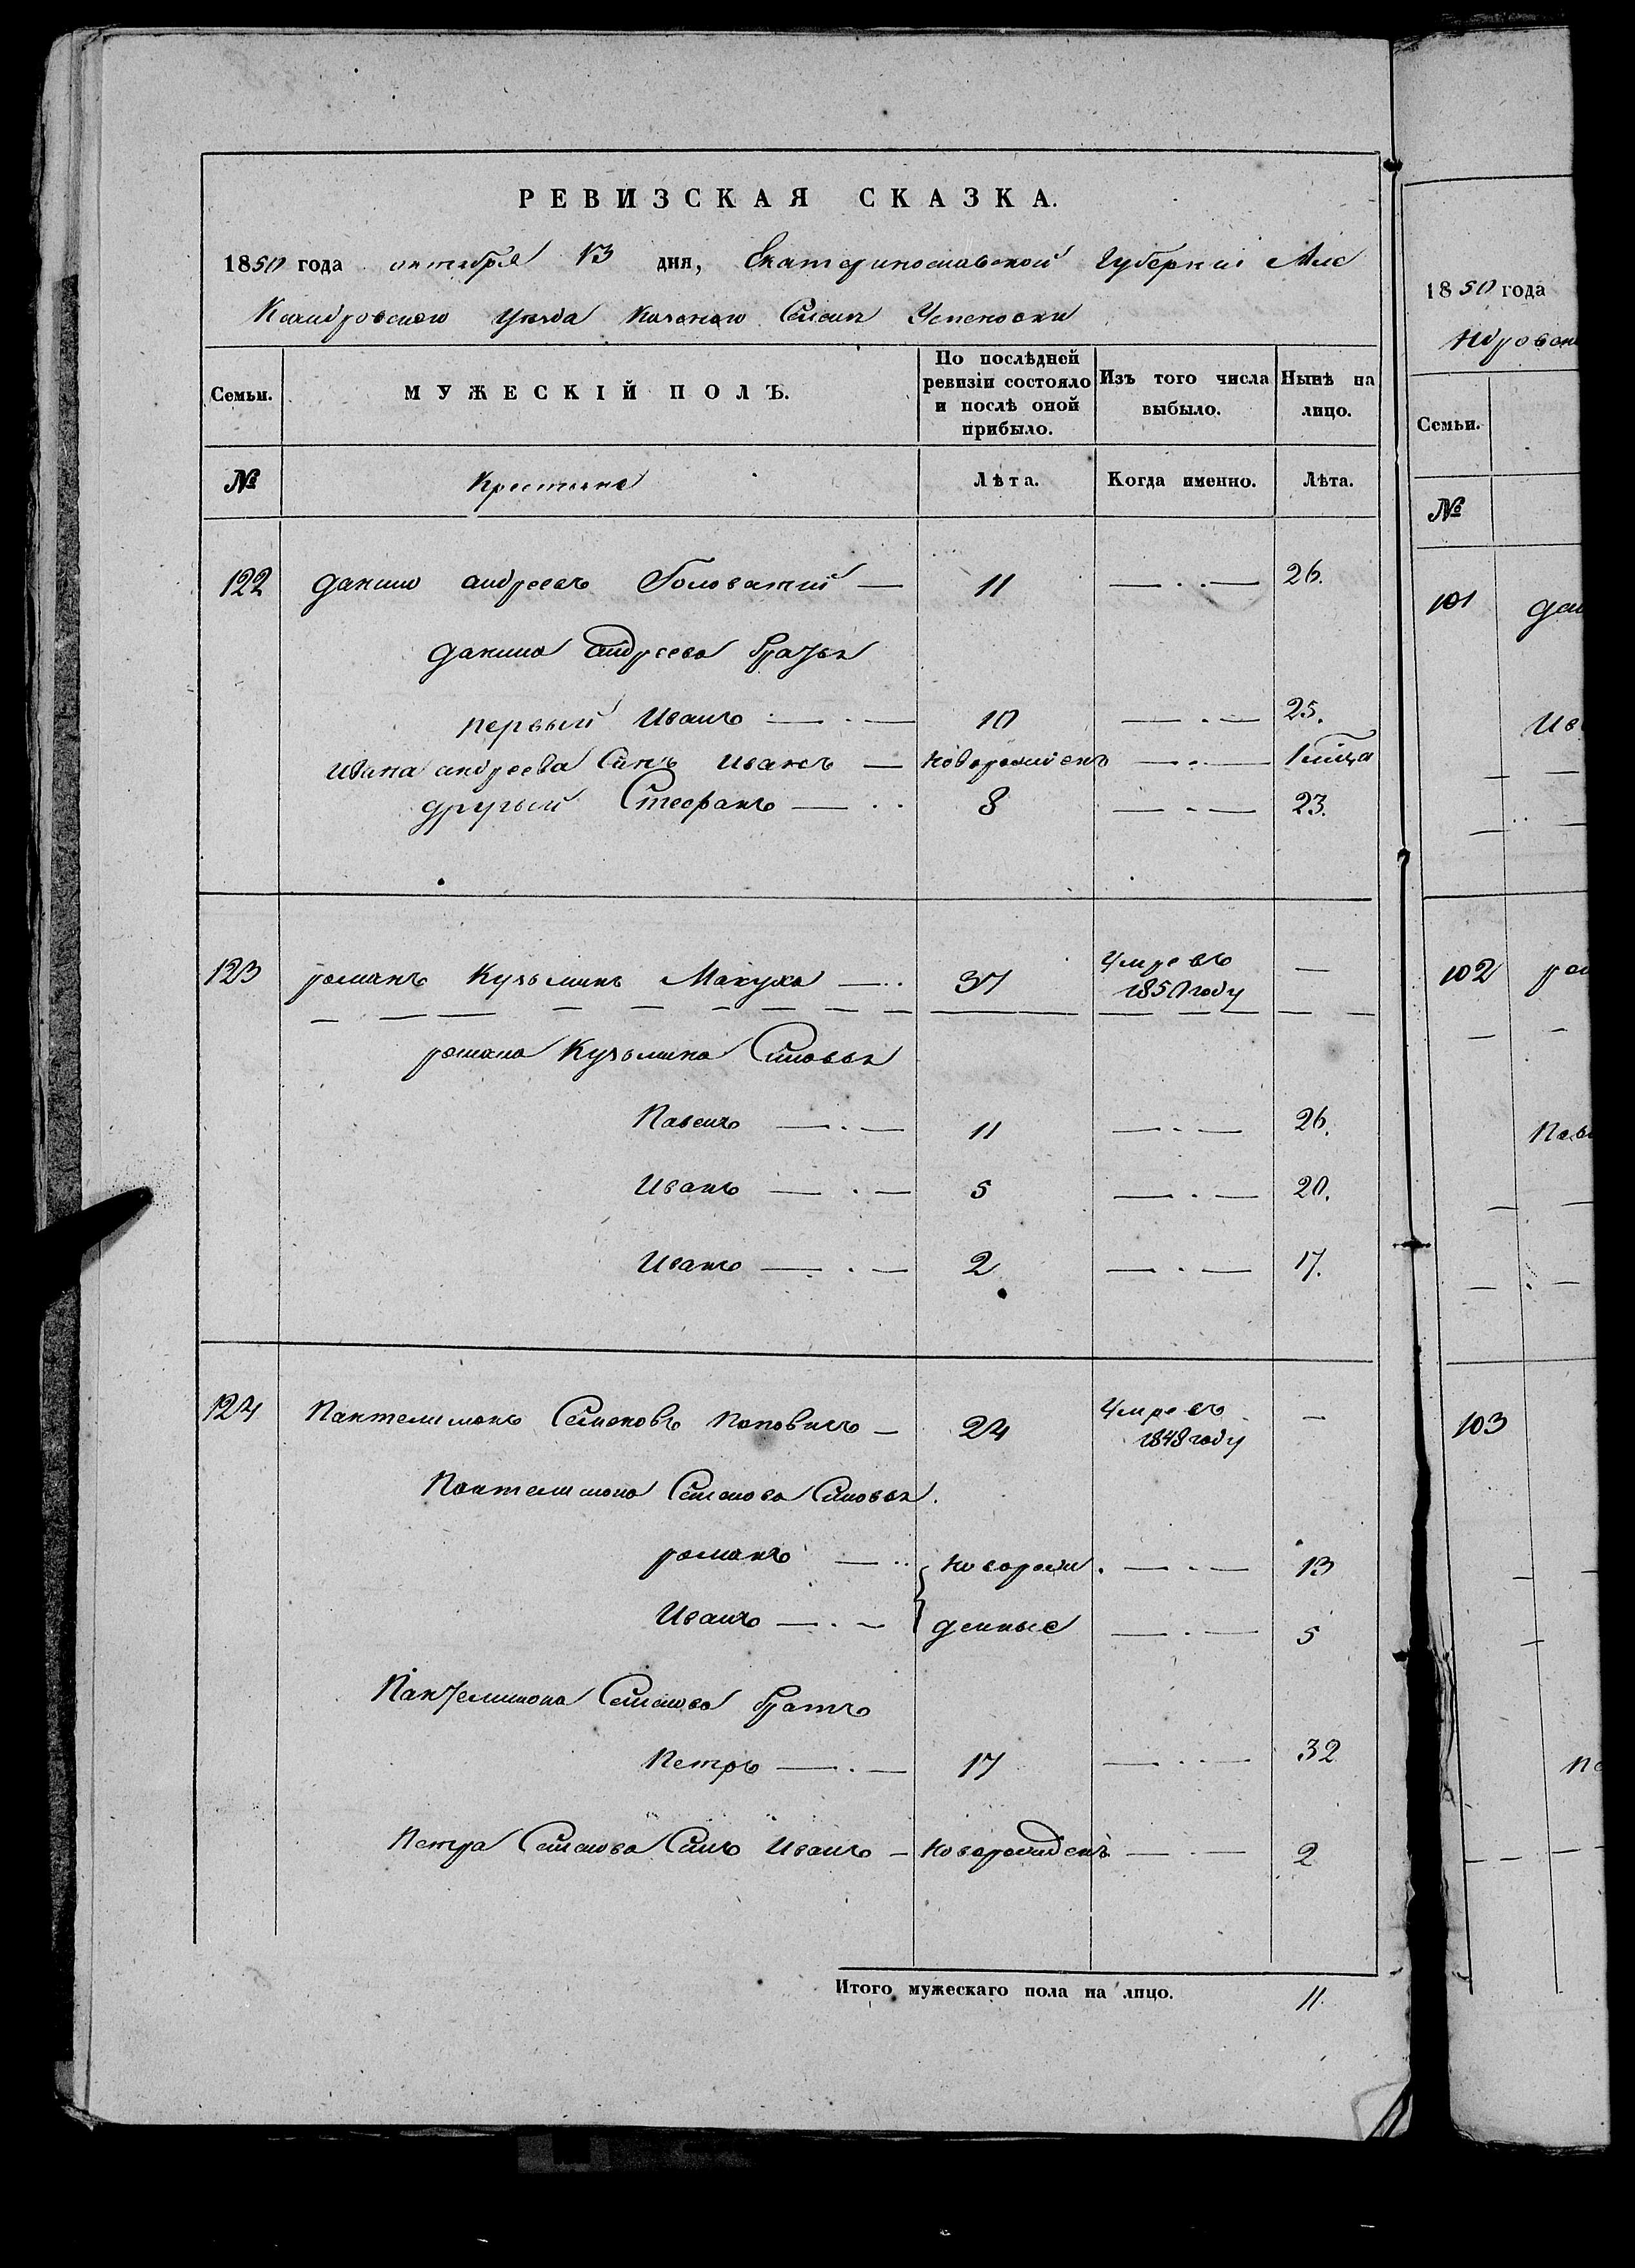 РЕВИЗСКАЯ СКАЗКА.
1850 года октября 13 дня, Екатеринославской Губерніи Але
Ксандровского уезда Казенного Селенія Успеновки
Семьи. МУЖЕСКІЙ ПОЛЪ. По послѣдней ревизіи состояло и послѣ оной прибыло. Изъ того числа выбыло. Нынѣ на лицо.
№ Крестьяне Лѣта. Когда именно. Лѣта.
122 данило андреевъ Головатий — 11 — . . — 26.
данила андреева братья
первый Иванъ — . — 10 — . — 25.
Ивана андреева Сынъ Иванъ — новорожденъ — . — 1 мѣсца
другый Стефанъ — . . 8 — . — 23.
123 романъ Кузьминъ Макуха — . . 37 Умревъ 1850 году —
романа Кузьмина Сыновья
Павелъ — . — 11 — . — 26.
Иванъ — . — 5 — . — 20.
Иванъ — . — 2 — . — 17.
124 Пантелимонъ Семеновъ Поповичъ — 24 Умревъ 1848 году —
Пантелимона Семенова Сыновья.
романъ — . . новорож — . — 13
Иванъ — . — денные — . — 5
Пантелимона Семенова братъ
Петръ — . — 17 — . . — 32
Петра Семенова Сынъ Иванъ — новорожденъ — . — 2
Итого мужескаго пола на лицо. 11.
1850 года
ндровск
Семьи.
№
101 дан
Ив
102 ром
Паве
103
Пе